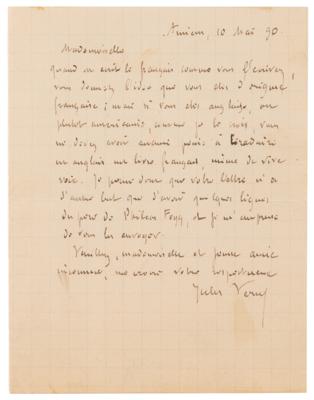 Amiens, 10 Mai 90.
Mademoiselle
quand on écrit le français comme vous l'écrivez,
vous donnez l'idée que vous êtes d'origine
française ; mais si vous êtes anglaise, ou
plutôt américaine, comme je le crois, vous
ne devez avoir aucune peine à traduire
en anglais un livre français, même de vive
voix. Je pense donc que votre lettre n'a
d'autre but que d'avoir quelques lignes
du père de Philéas Fogg, et je m'empresse
de vous les envoyer.
Veuillez, mademoiselle et jeune amie
inconnue, me croire votre respectueux
Jules Verne